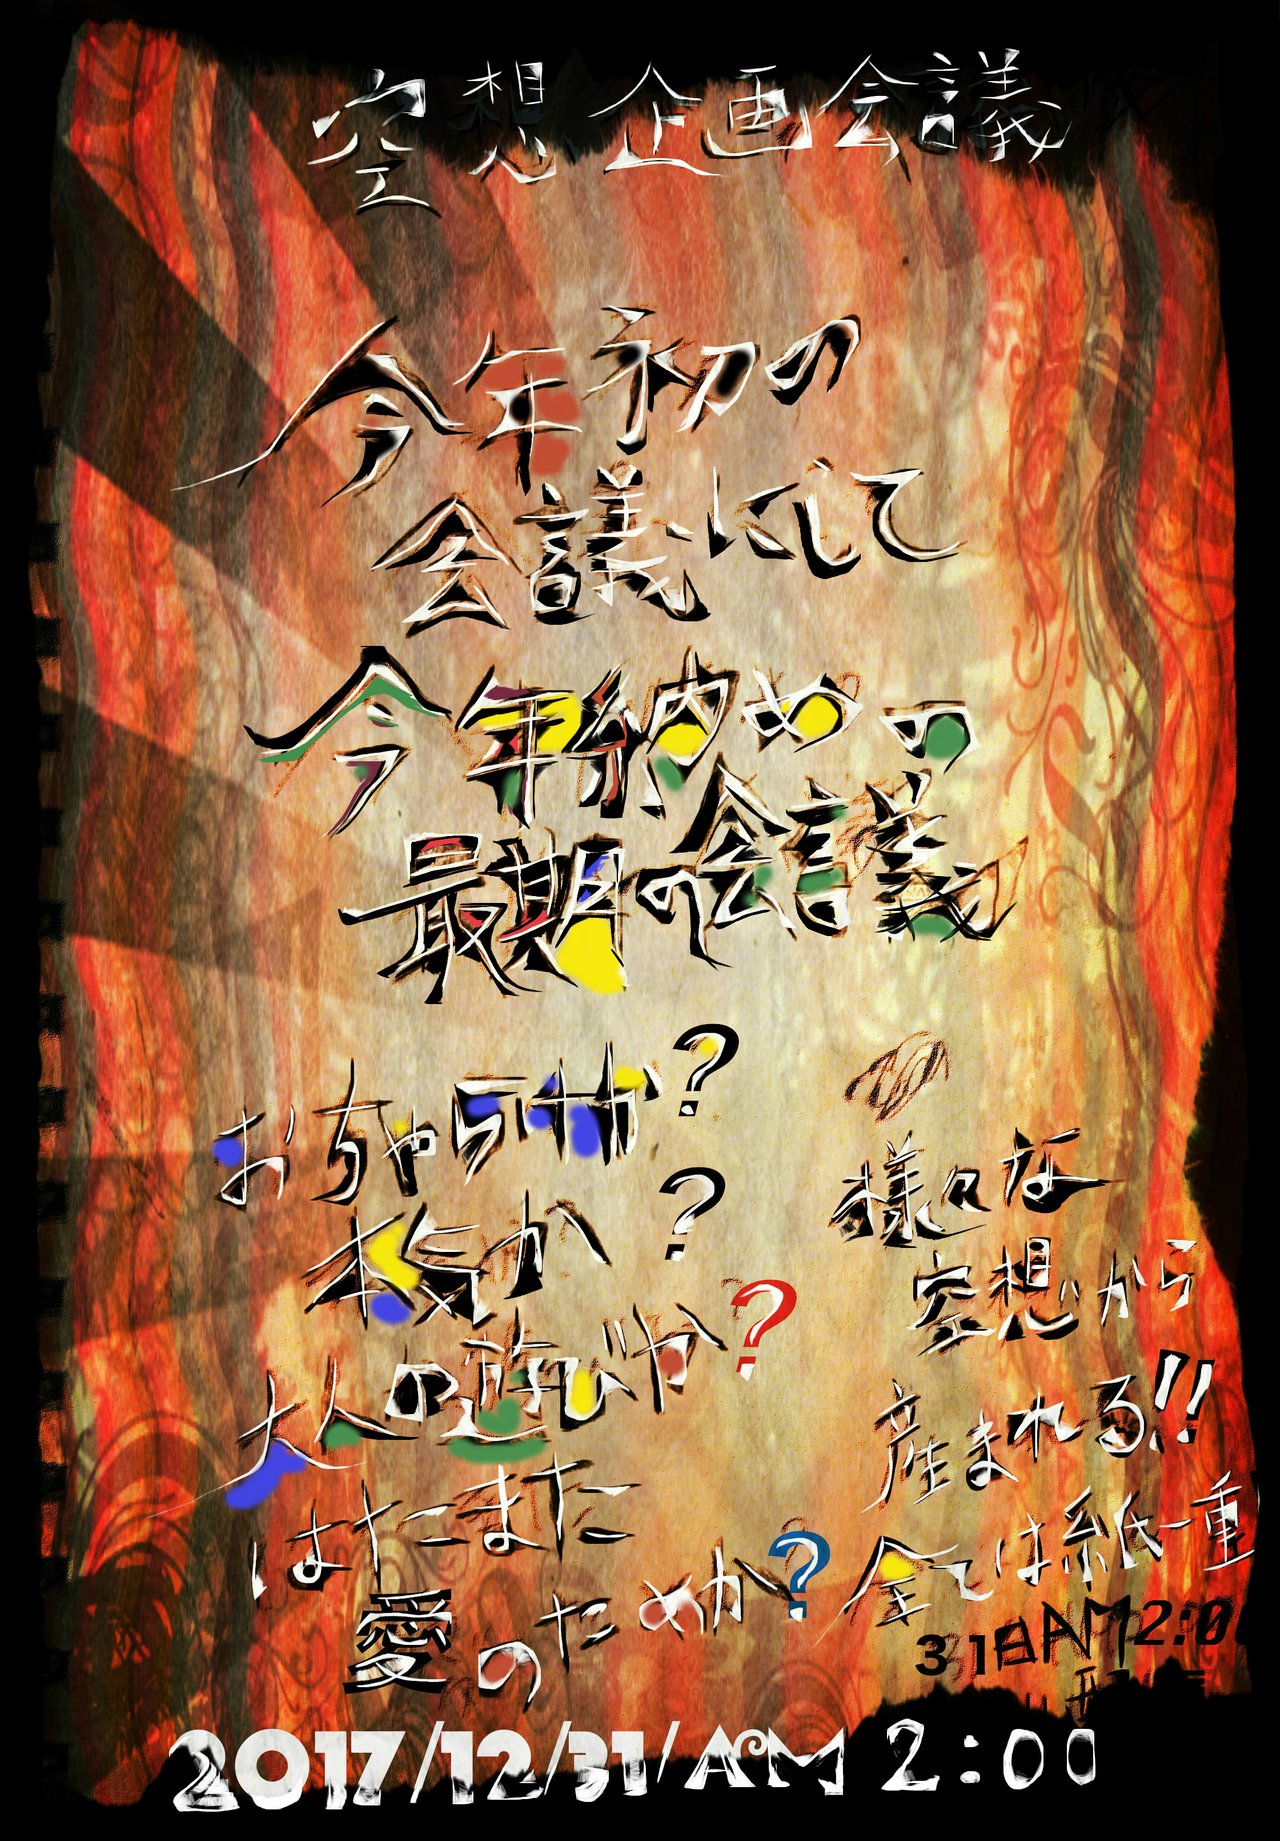 空想企画会議
今年初の
会議にして
今年納めの
最期の会議
おちゃらけか?
本気か?
大人の遊びか?
はたまた
愛のためか?
様々な
空想から
産まれる!!
全ては紙一重
31日AM2:0
2017/12/31/AM2:00